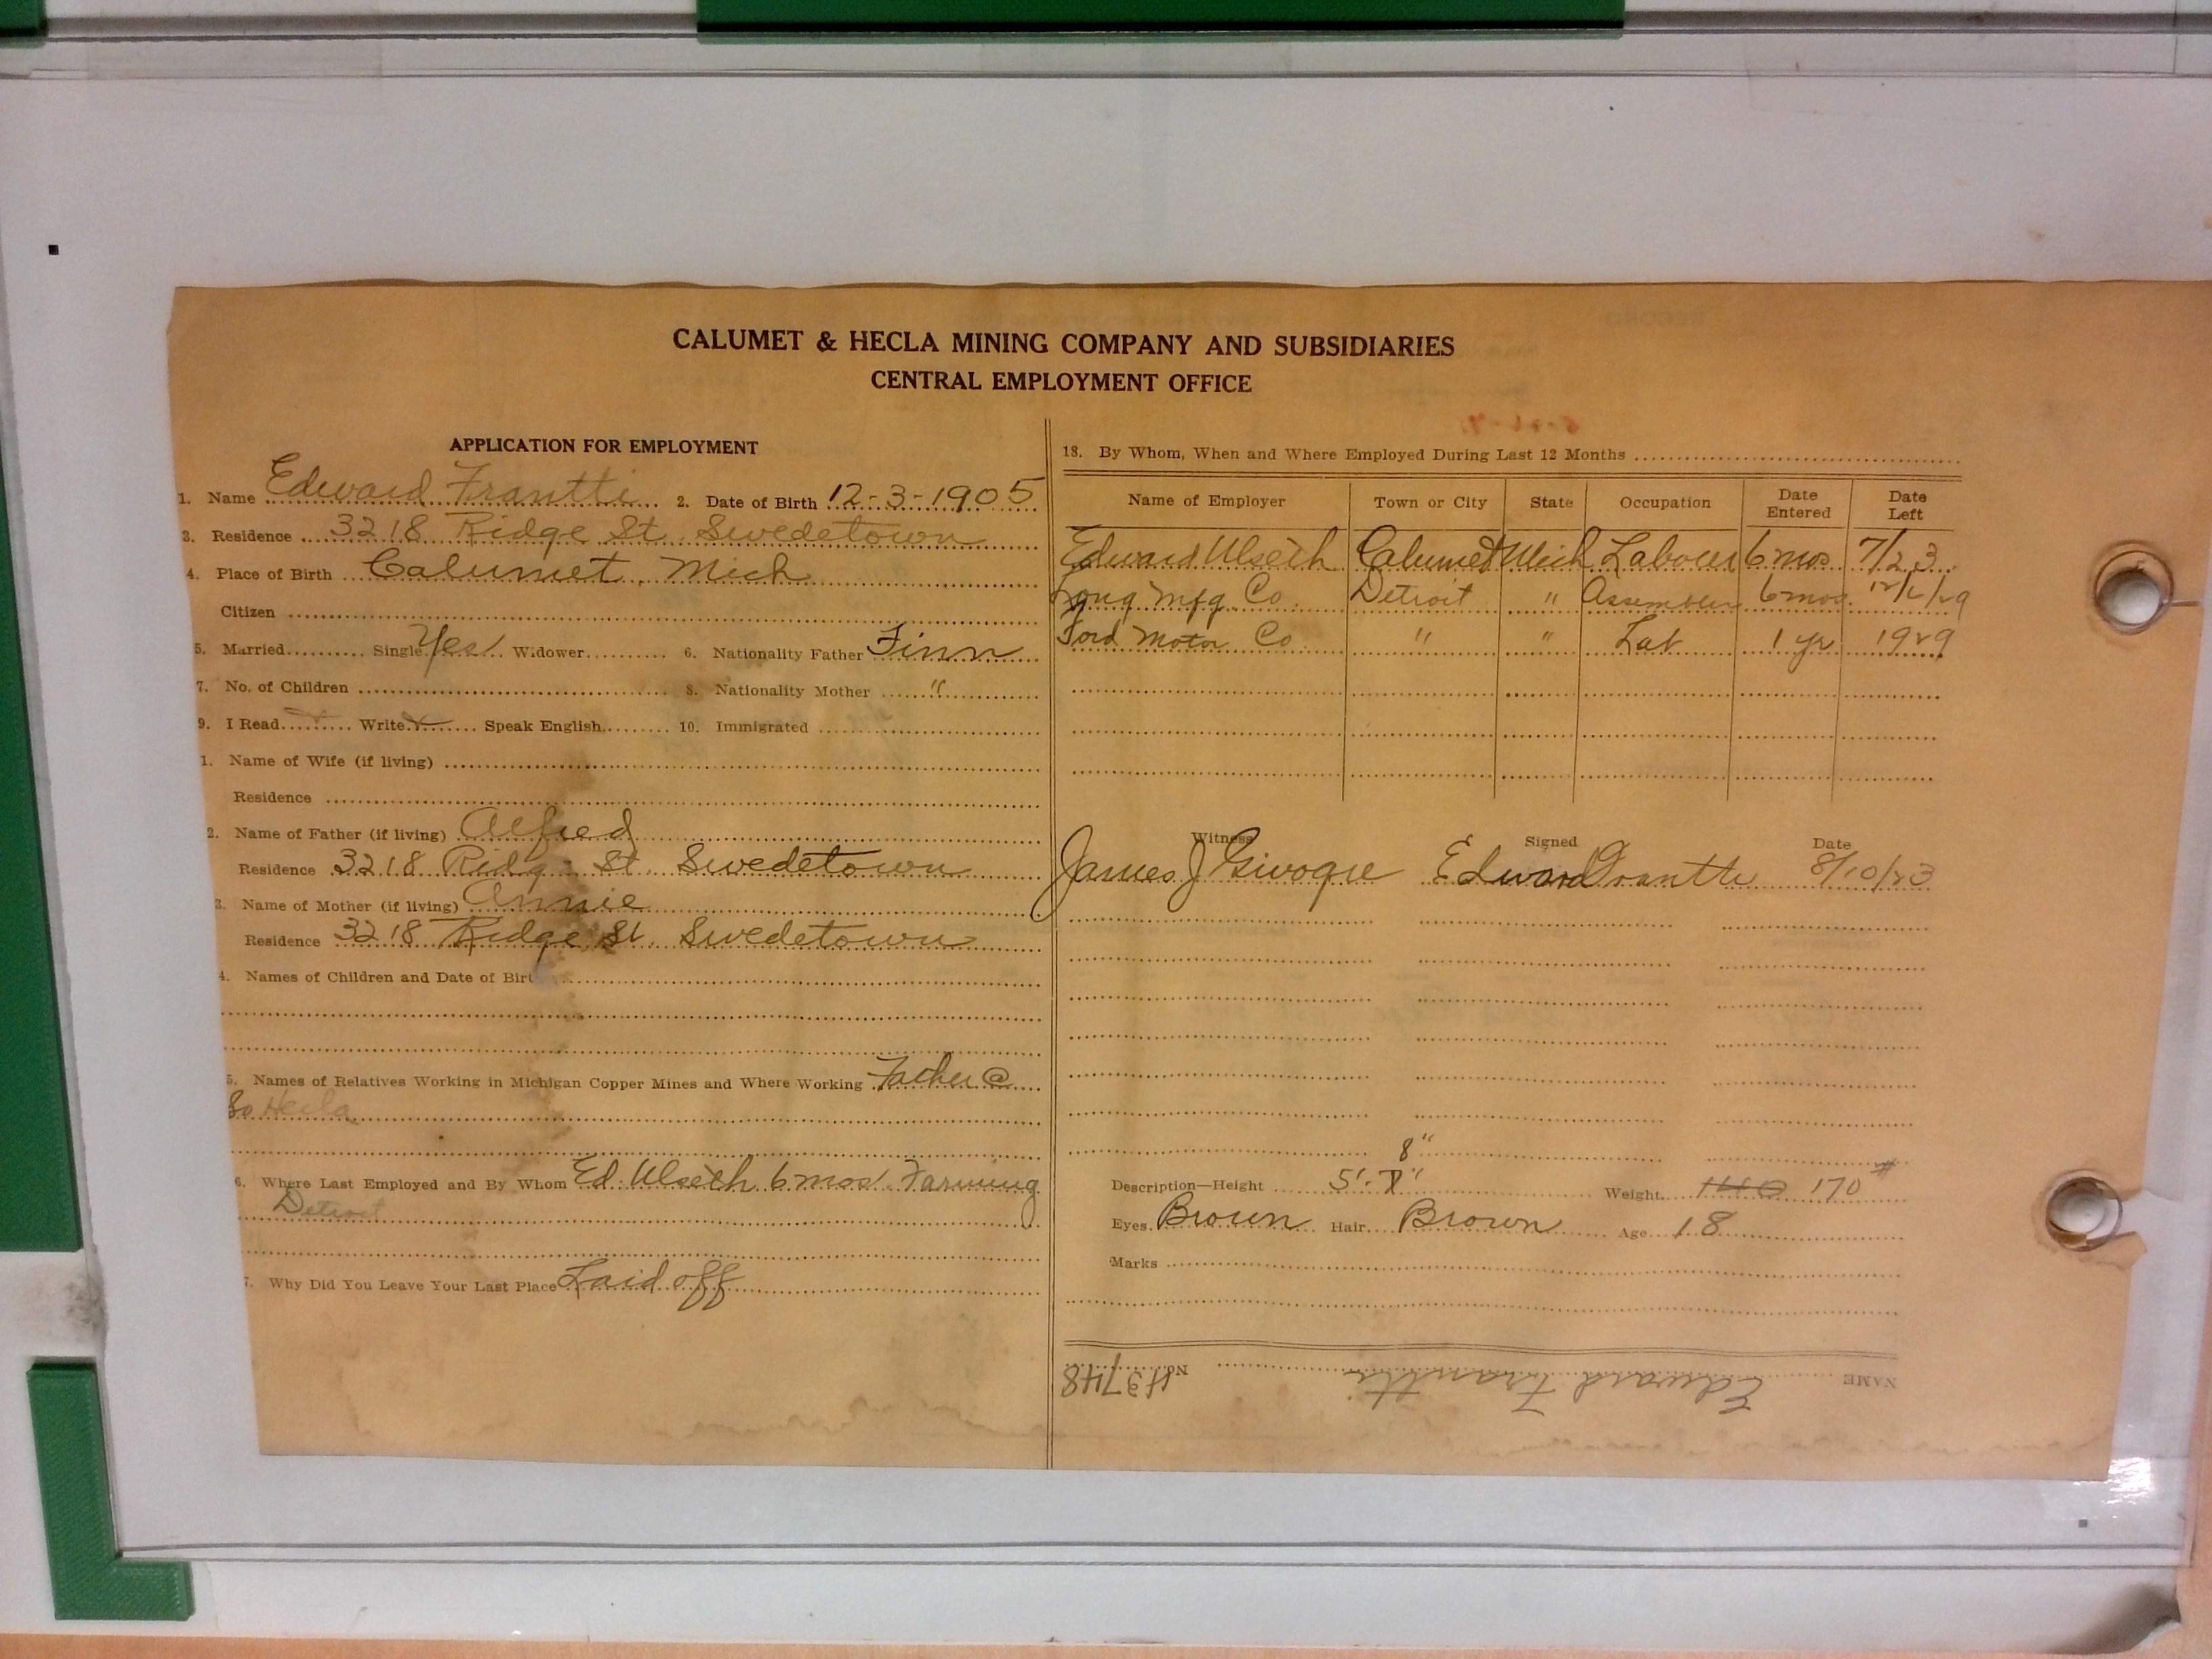 CALUMET & HECLA MINING COMPANY AND SUBSIDIARIES
CENTRAL EMPLOYMENT OFFICE
APPLICATION FOR EMPLOYMENT
1. Name Edward Frantti 2. Date of Birth 12-3-1905
3. Residence 3218 Ridge St. Swedetown
4. Place of Birth Calumet, Mich
Citizen
5. Married Single Yes Widower 6. Nationality Father Finn
7. No. of Children 8. Nationality Mother "
9. I Read Write Speak English 10. Immigrated
1. Name of Wife (if living)
Residence
2. Name of Father (if living) Alfred
Residence 3218 Ridge St. Swedetown
3. Name of Mother (if living) Annie
Residence 3218 Ridge St. Swedetown
4. Names of Children and Date of Birt
5. Names of Relatives Working in Michigan Copper Mines and Where Working Father @
So Hecla
6. Where Last Employed and By Whom Ed. Ulseth 6 mos Farming
Detroit
7. Why Did You Leave Your Last Place Laid off
18. By Whom, When and Where Employed During Last 12 Months
Name of Employer Town or City State Occupation Date Entered Date Left
Edward Ulseth Calumet Mich Labour 6 mos 7/23
Long Mfg Co. Detroit " Assembler 6 mos
Ford Motor Co " " Lab 1 yr 1929
Witness Signed Date
James J Edward Frantti 8/10/23
8"
Description—Height 5'-7" Weight 170 #
Eyes Brown Hair Brown Age 18
Marks
NAME Edward Frantti No 43748